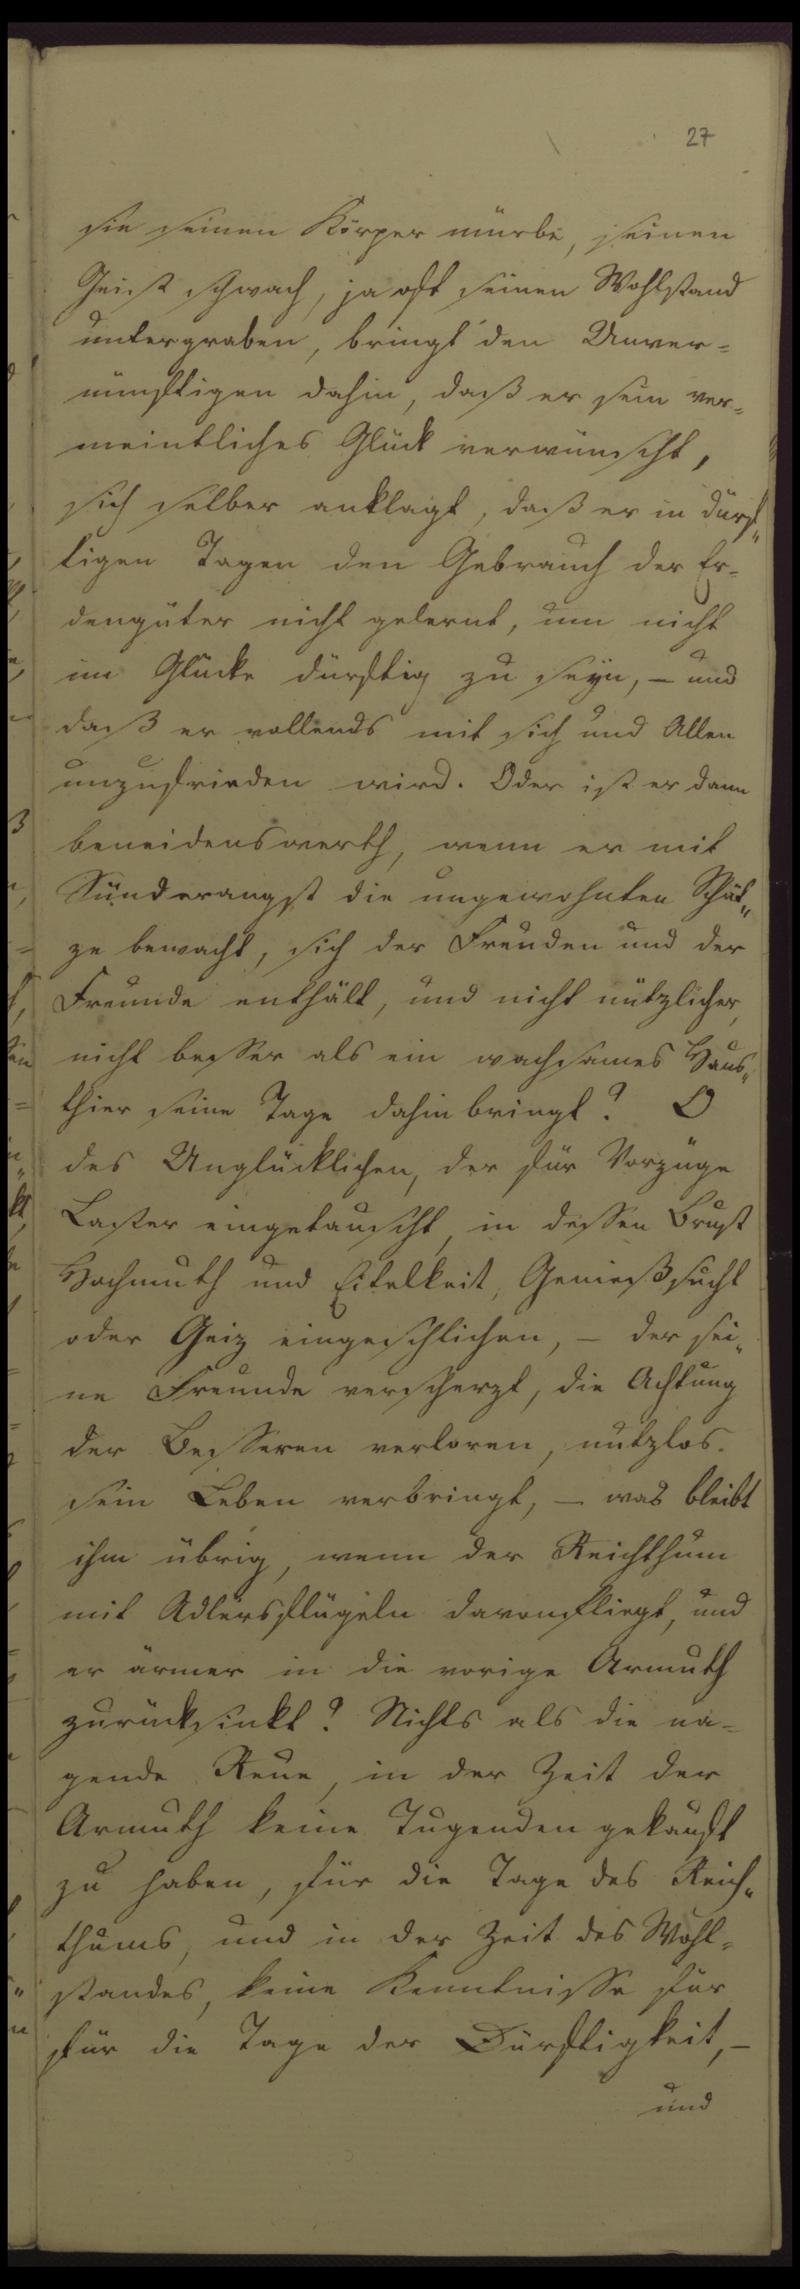 27
sie seinen Körper mürbe, seinen
Geist schwach, ja oft seinen Wohlstand
untergraben, bringt den Unver=
nünftigen dahin, daß er sein ver=
meintliches Glück verwünscht,
sich selber anklagt, daß er in dürf„
tigen Tagen den Gebrauch der Er=
dengüter nicht gelernt, um nicht
im Glücke dürftig zu seyn, – und
daß er vollends mit sich und Allen
unzufrieden wird. Oder ist er dann
beneidenswerth, wenn er mit
Sünderangst die ungewohnten Schät„
ze bewacht, sich der Freuden und der
Freunde enthält, und nicht nützlicher,
nicht besser als ein wachsames Haus„
thier seine Tage dahin bringt? O
des Unglücklichen, der für Vorzüge
Laster eingetauscht, in dessen Brust
Hochmuth und Eitelkeit, Genießsucht
oder Geiz eingeschlichen, – der sei„
ne Freunde verscherzt, die Achtung
der Besseren verloren, nutzlos
sein Leben verbringt, – was bleibt
ihm übrig, wenn der Reichthum
mit Adlersflügeln davonfliegt, und
er ärmer in die vorige Armuth
zurücksinkt? Nichts als die na=
gende Reue, in der Zeit der
Armuth keine Tugenden gekauft
zu haben, für die Tage des Reich„
thums, und in der Zeit des Wohl=
standes, keine Kenntnisse für
für die Tage der Dürftigkeit, –
und